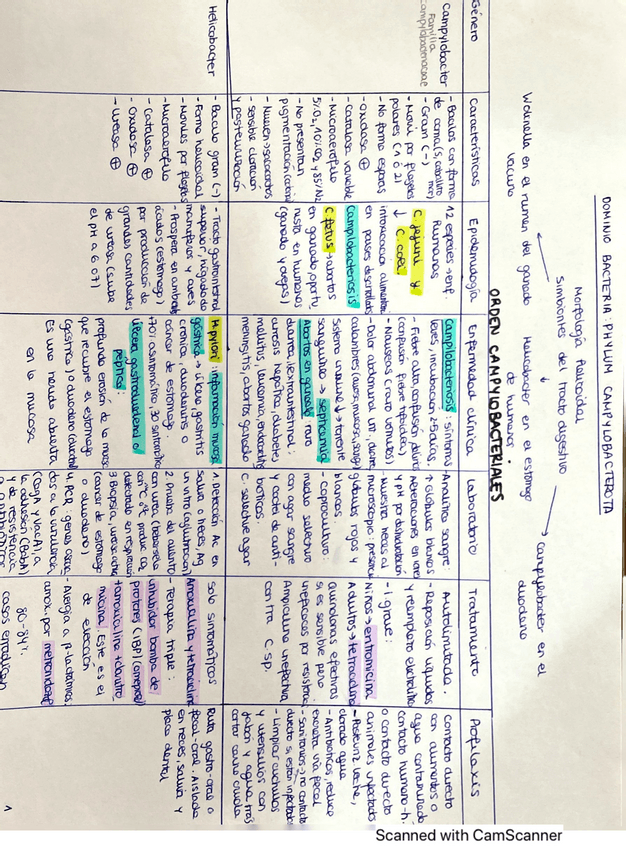 DOMINIO BACTERIA: PHYLUM CAMPYLOBACTEROTA
Morfología helicoidal
Simbiontes del tracto digestivo
Wolinella en el rumen del ganado
vacuno
Helicobacter en el estómago
de humanos
Campylobacter en el
duodeno
ORDEN CAMPYLOBACTERIALES
Género
Características
Epidemiología
Enfermedad clínica
Laboratorio
Tratamiento
Profilaxis
Campylobacter
Familia
campylobacteraceae
- Bacilos con forma
de coma (S, caballito
mar)
- Gram (-)
- Movil por flagelos
polares (1 ó 2)
- No forma esporas
- Oxidasa +
- Catalasa variable
- Microaerófilo
5% O2, 10% CO2 y 85% N2
- No presentan
pigmentación
- Mueren secado
- Sensible cloración
y pasteurización
12 especies → enf.
humanas
C. jejuni y
↓ C. coli:
intoxicación alimentaria
en países desarrollados
Campilobacteriosis
C. fetus → abortos
en ganado, oportu-
nista en humanos
(ganado y ovejas)
Campilobacteriosis: síntomas
leves, incubación 2-5 días.
- Fiebre alta, confusión, delirio
(confusión fiebre tifoidea)
- Náuseas (raro vómitos)
- Dolor abdominal
calambres (
Sistema inmune ↓ → torrente
sanguíneo → septicemia
Abortos en ganado, raro
diarrea, extraintestinal:
cirrosis hepática, diabetes
mellitus, leucemia, endocarditis
meningitis, abortos ganado
Analítica sangre:
↑ glóbulos blancos
Alteraciones en iones
y pH por deshidratación
Muestra heces al
microscopio: presencia
glóbulos rojos y
blancos
- Coprocultivo:
medio selectivo
con agar sangre
y coctel de anti-
bióticos
C. selective agar
Autolimitada.
- Reposición líquidos
y reemplazo electrolitos
- ↑ grave:
Niños → eritromicina
Adultos → tetraciclina
Quinolonas efectivas
si es sensible pero
inefectivas por resistencia
Ampicilina inefectiva
contra C. sp.
Contacto directo
con alimentos o
agua contaminada
contacto humano-h.
o contacto directo
animales infectados
- Pasteuriz leche,
clorado agua
- Antibióticos, reduce
excreta vía fecal
- Sanitarios → no contacto
directo si están infectados
- Limpiar cuchillos
y utensilios con
jabón y agua tras
cortar carne cruda
Helicobacter
- Bacilo gram (-)
- Forma helicoidal
- Moviles por flagelos
- Microaerófilo
- Catalasa +
- Oxidasa +
- Ureasa +
- Tracto gastrointestinal
superior, hígado de
mamíferos y aves
- Prospera en ambientes
ácidos (estómago)
por producción de
grandes cantidades
de ureasa (sube
el pH a 6 o 7)
H. pylori: inflamación mucosa
gástrica → úlcera, gastritis
crónica, duodenitis o
cáncer de estómago.
70% asintomático, 30% sintomático
Úlcera gastroduodenal o
péptica:
profunda erosión de la mucosa
que recubre el estómago
(gástrica) o duodeno (duodenal)
Es una herida abierta
en la mucosa
1. Detección Ac en
saliva o heces, Ag
in vitro (aglutinación)
2. Prueba del aliento
con urea (
con 14C se produce CO2
detectado en respiración
3. Biopsia, ureasa activa
(cáncer de estómago
o duodeno)
4. PCR: genes asocia-
dos a la virulencia,
la adhesión (BabA)
(CagA y VacA), a
y de resistencia
a antibióticos
Solo sintomáticos
Amoxicilina y tetraciclina
- Terapia triple:
inhibidor bomba de
protones (IBP) (omeprazol)
+ amoxicilina + claritro-
micina. Este es el
de elección
- Alergia a β-lactámicos,
amox. por metronidazol
80-84%
casos erradican
Ruta gastro-oral o
fecal-oral. Aislada
en heces, saliva y
placa dental
1
Scanned with CamScanner